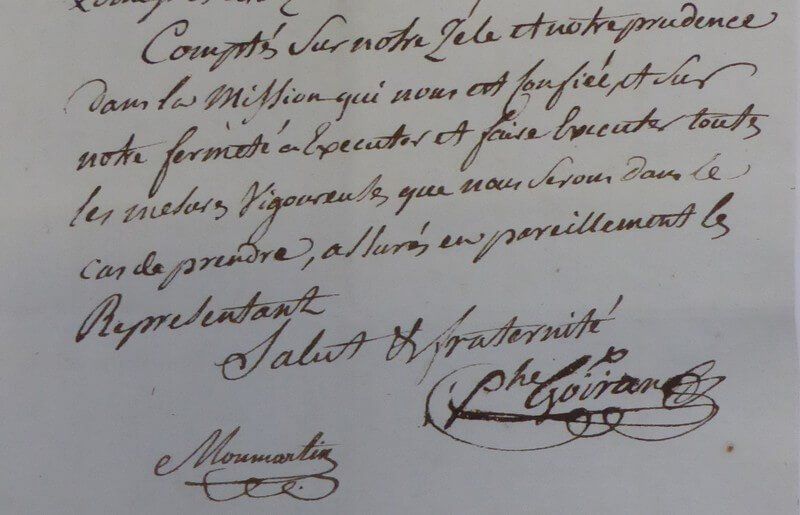 Comptés sur notre Zéle et notre prudence
dans la Mission qui nous est Confiéé, et sur
notre fermeté a Executer et faire Executer toutes
les mesures Vigoureuses que nous serons dans le
cas de prendre, assurés en pareillement les
Representant
Salut & fraternité
Phe Goiran
Moumartin